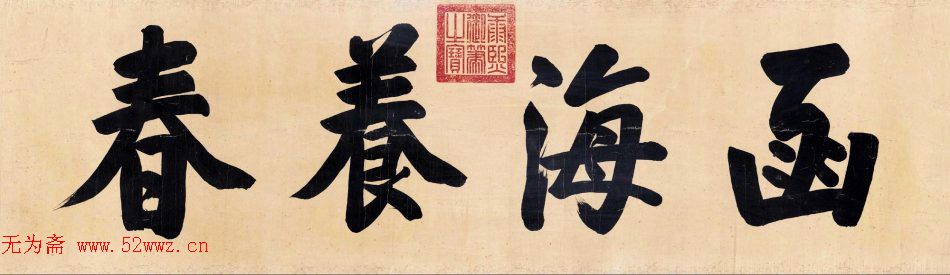 函海養春
康熙
御筆
之寶
无为斋 www.52wwz.cn